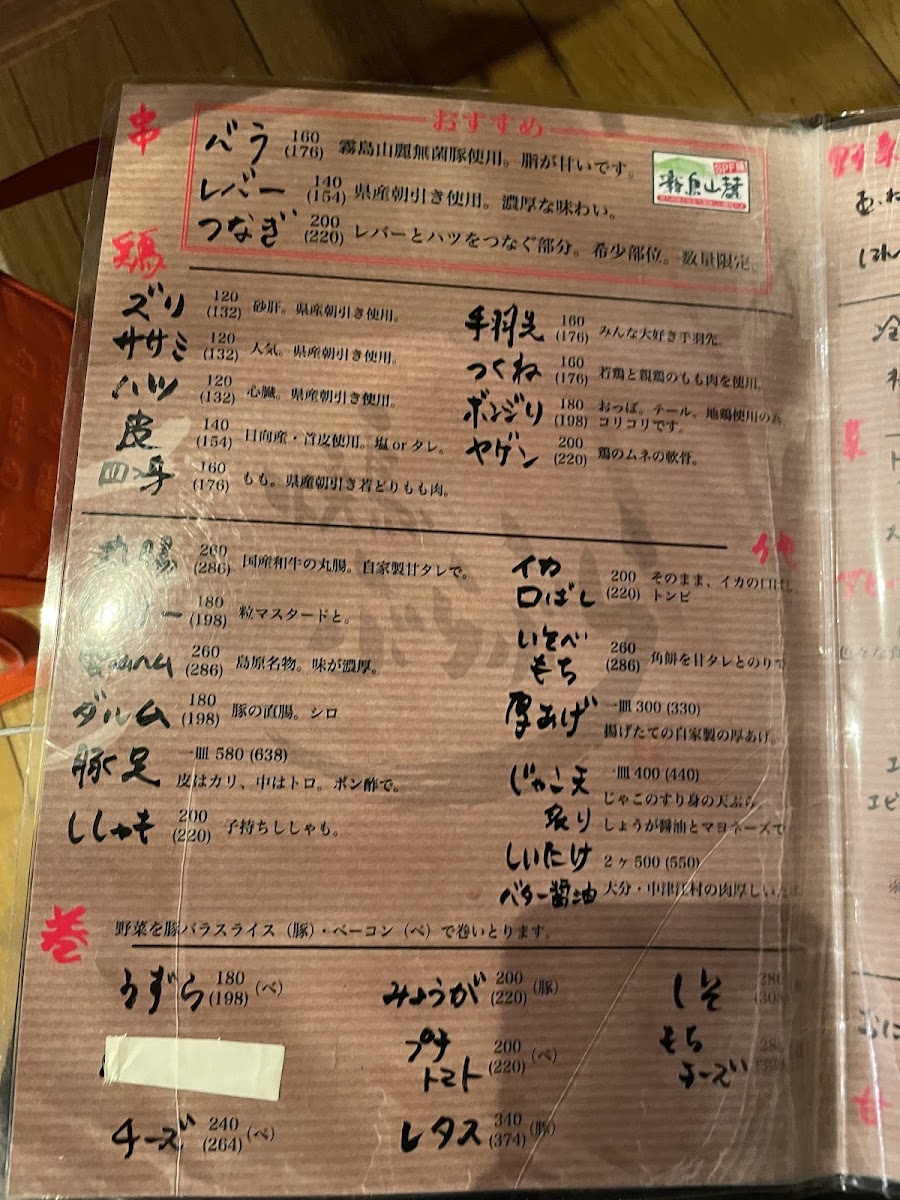 串
おすすめ
バラ 160 (176) 霧島山麗無菌豚使用。脂が甘いです。
霧島山麓
レバー 140 (154) 県産朝引き使用。濃厚な味わい。
つなぎ 200 (220) レバーとハツをつなぐ部分。希少部位。数量限定。
鶏
ズリ 120 (132) 砂肝。県産朝引き使用。
ササミ 120 (132) 人気。県産朝引き使用。
ハツ 120 (132) 心臓。県産朝引き使用。
皮 140 (154) 日向産・首皮使用。塩 or タレ。
四ツ身 160 (176) もも。県産朝引き若どりもも肉。
手羽先 160 (176) みんな大好き手羽先。
つくね 160 (176) 若鶏と親鶏のもも肉を使用。
ボンジリ 180 (198) おっぽ。テール。地鶏使用の為
コリコリです。
ヤゲン 200 (220) 鶏のムネの軟骨。
丸腸 260 (286) 国産和牛の丸腸。自家製甘タレで。
ー 180 (198) 粒マスタードと。
260 (286) 島原名物。味が濃厚。
ダルム 180 (198) 豚の直腸。シロ
豚足 一皿 580 (638)
皮はカリ、中はトロ。ポン酢で。
ししゃも 200 (220) 子持ちししゃも。
イカ
口ばし 200 (220) そのまま、イカの口ばし
トンビ
いそべ
もち 260 (286) 角餅を甘タレとのりで
厚あげ 一皿 300 (330)
揚げたての自家製の厚あげ。
じゃこ天 一皿 400 (440)
じゃこのすり身の天ぷら。
炙り しょうが醤油とマヨネーズで
しいたけ 2ヶ 500 (550)
バター醤油 大分・中津江村の肉厚しいた
巻
野菜を豚バラスライス（豚）・ベーコン（ベ）で巻いとります。
うずら 180 (198) (ベ)
チーズ 240 (264) (ベ)
みょうが 200 (220) (豚)
プチ
トマト 200 (220) (ベ)
レタス 340 (374) (豚)
しそ
もち
チーズ
野菜